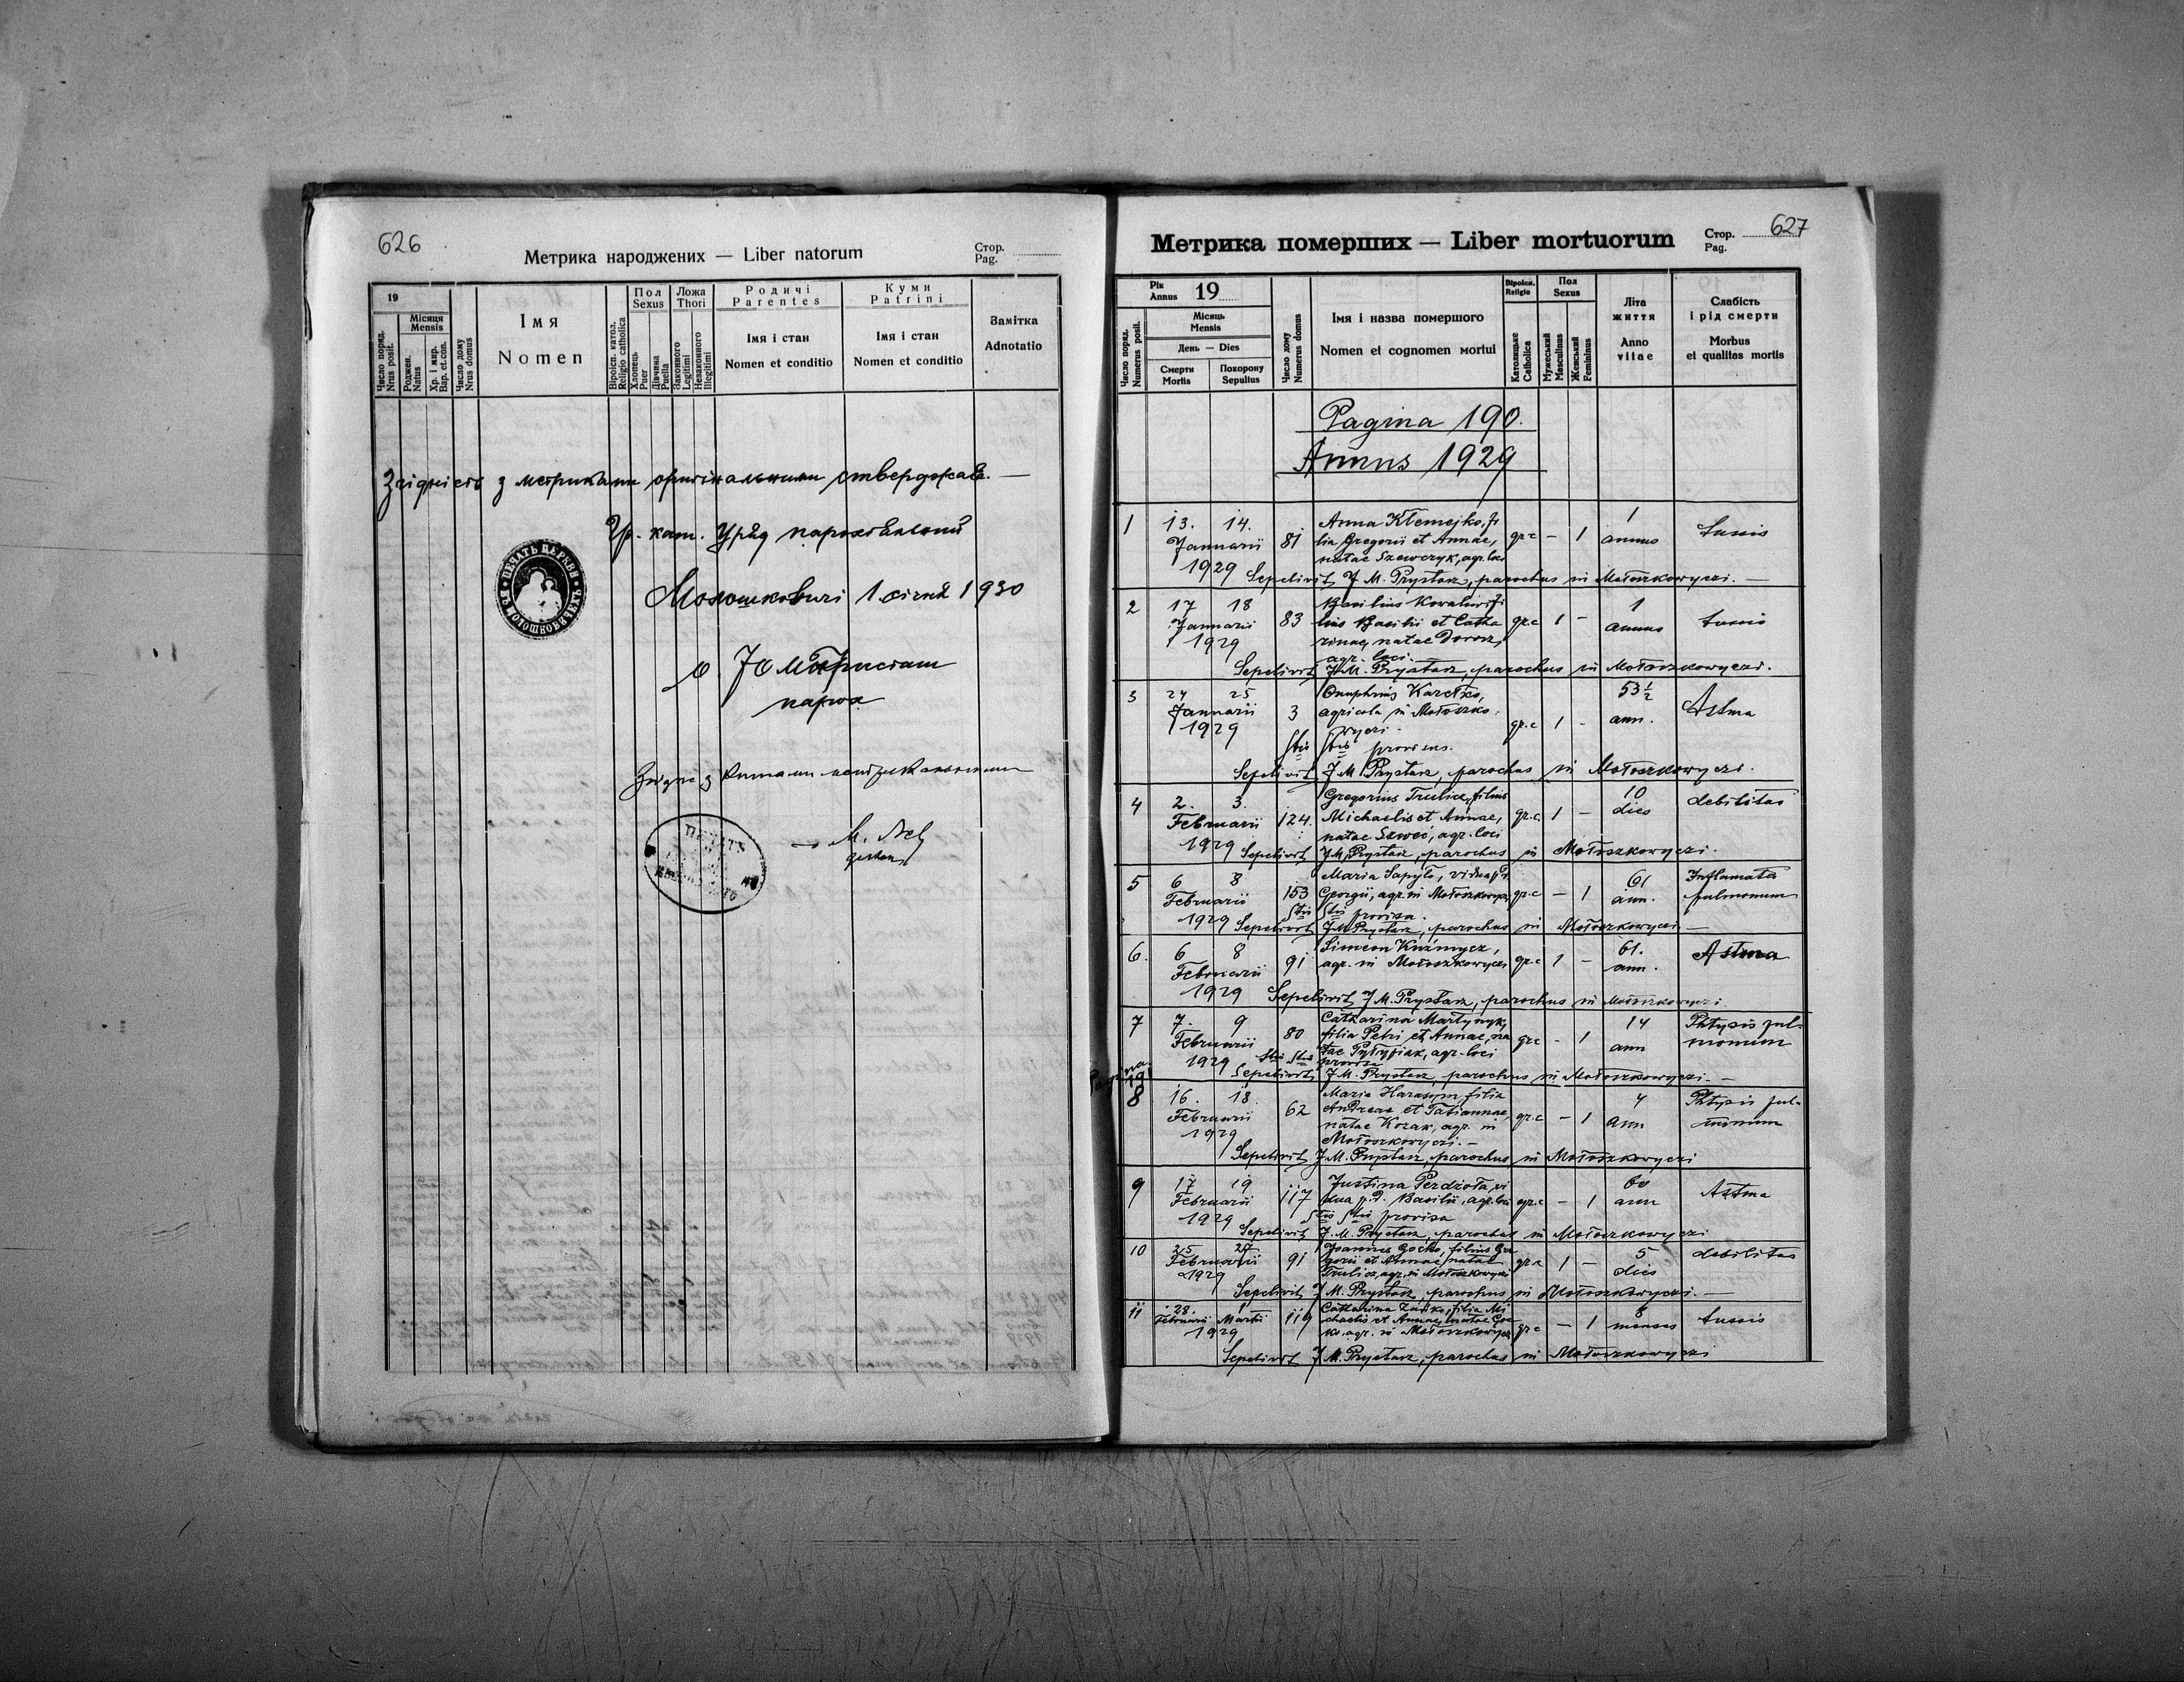 626
Метрика народжених — Liber natorum
Стор.
Pag.
19
Число поряд.
Nrus posit.
Місяця
Mensis
Роджен.
Natus
Хр. і мир.
Bap. et con.
Число дому
Nrus domus
Імя
Nomen
Віроісп. катол.
Religio catholica
Пол
Sexus
Хлопець
Puer
Дівчина
Puella
Ложа
Thori
Законного
Legitimi
Незаконного
Illegitimi
Родичі
Parentes
Імя і стан
Nomen et conditio
Куми
Patrini
Імя і стан
Nomen et conditio
Замітка
Adnotatio
Згідність з метриками оригінальними стверджає. —
Гр. кат. Уряд парохіяльний
Молошковичі 1 січня 1930
о. Ю М Присташ
парох
Згідне з
ПЕЧАТЬ ЦЕРКВИ
Метрика померших — Liber mortuorum
Стор. 627
Pag.
Рік
Annus 19
Число поряд.
Numerus posit.
Місяць
Mensis
День — Dies
Смерти
Mortis
Похорону
Sepultus
Число дому
Numerus domus
Імя і назва помершого
Nomen et cognomen mortui
Віроісп.
Religio
Католицьке
Catholica
Пол
Sexus
Мужеський
Masculinus
Женський
Femininus
Літа
життя
Anno
vitae
Слабість
і рід смерти
Morbus
et qualitas mortis
Pagina 190.
Annus 1929
1 13. 14. Anna Klemejko, fi 1
Januarii 81 lia Gregorii et Annae, gr c – 1 annus tussis
1929 natae Szewczyk, agr. loci
Sepelivit J M. Prystasz, parochus in Mołoszkowyczi. —
2 17 18 Basilius Kowalıw, fi 1
Januarii 83 lius Basilii et Catha gr.c 1 – annus tussis
1929 rinae, natae Dorosz,
agr. loci.
Sepelivit J M. Prystasz, parochus in Mołoszkowyczi.
3 24 25 Onuphrius Karetko, 53 ½
Januarii 3 agricola in Mołoszko- gr.c 1 – ann. Astma
1929 wyczi.
Stis Stis provisus.
Sepelivit J M Prystasz, parochus in Mołoszkowyczi.
4 2. 3. Gregorius Trulicz, filius 10 debilitas
Februarii 124. Michaelis et Annae, gr.c. 1 – dies
1929 natae Szweć, agr. loci
Sepelivit J M, Prystasz, parochus in Mołoszkowyczi.
5 6 8 Maria Sapyło, vidua p. 61 Inflamata
Februarii 153 Georgii, agr. in Mołoszkowycz, gr.c – 1 ann. pulmonum
1929 Stis Stis provisa.
Sepelivit J M Prystasz, parochus in Mołoszkowyczi —
6. 6 8 Simeon Kuźmycz, 61.
Februarii 91 agr. in Mołoszkowyczi gr.c 1 – ann. Astma
1929 Sepelivit J M. Prystasz, parochus in Mołoszkowyczi.
7 7. 9 Catharina Martynyk, 14 Phtysis pul-
Februarii 80 filia Petri et Annae, na gr.c – 1 ann monum
1929 Stis Stis tae Pyłypiak, agr. loci
provisa
Sepelivit J M. Prystasz, parochus in Mołoszkowyczi. —
Pagina
191
8 16. 18. Maria Harasym, filia 4 Phtysis pul-
Februarii 62 Andreae et Tatiannae, gr.c – 1 ann monum
1929 natae Kozak, agr. in
Mołoszkowyczi. —
Sepelivit J M. Prystasz, parochus in Mołoszkowyczi
9 17 19 Justina Perdzoła, vi 60
Februarii 117 dua p. d. Basilii, agr. loci gr.c – 1 ann Astma
1929 Stis Stis provisa
Sepelivit J. M. Prystasz, parochus in Mołoszkowyczi
10 25 27 Joannes Goćko, filius Gre 5 debilitas
Februarii 91 gorii et Annae, natae gr.c 1 – dies
1929 Trulicz, agr. in Mołoszkowyczi
Sepelivit J M. Prystasz, parochus in Mołoszkowyczi. —
11 28. 1 Catharina Zańko, filia Mi 8
Februarii Martii 119 chaelis et Annae, natae Goc gr c – 1 menses tussis
1929 ko, agr. in Mołoszkowycz
Sepelivit J M. Prystasz, parochus in Mołoszkowyczi